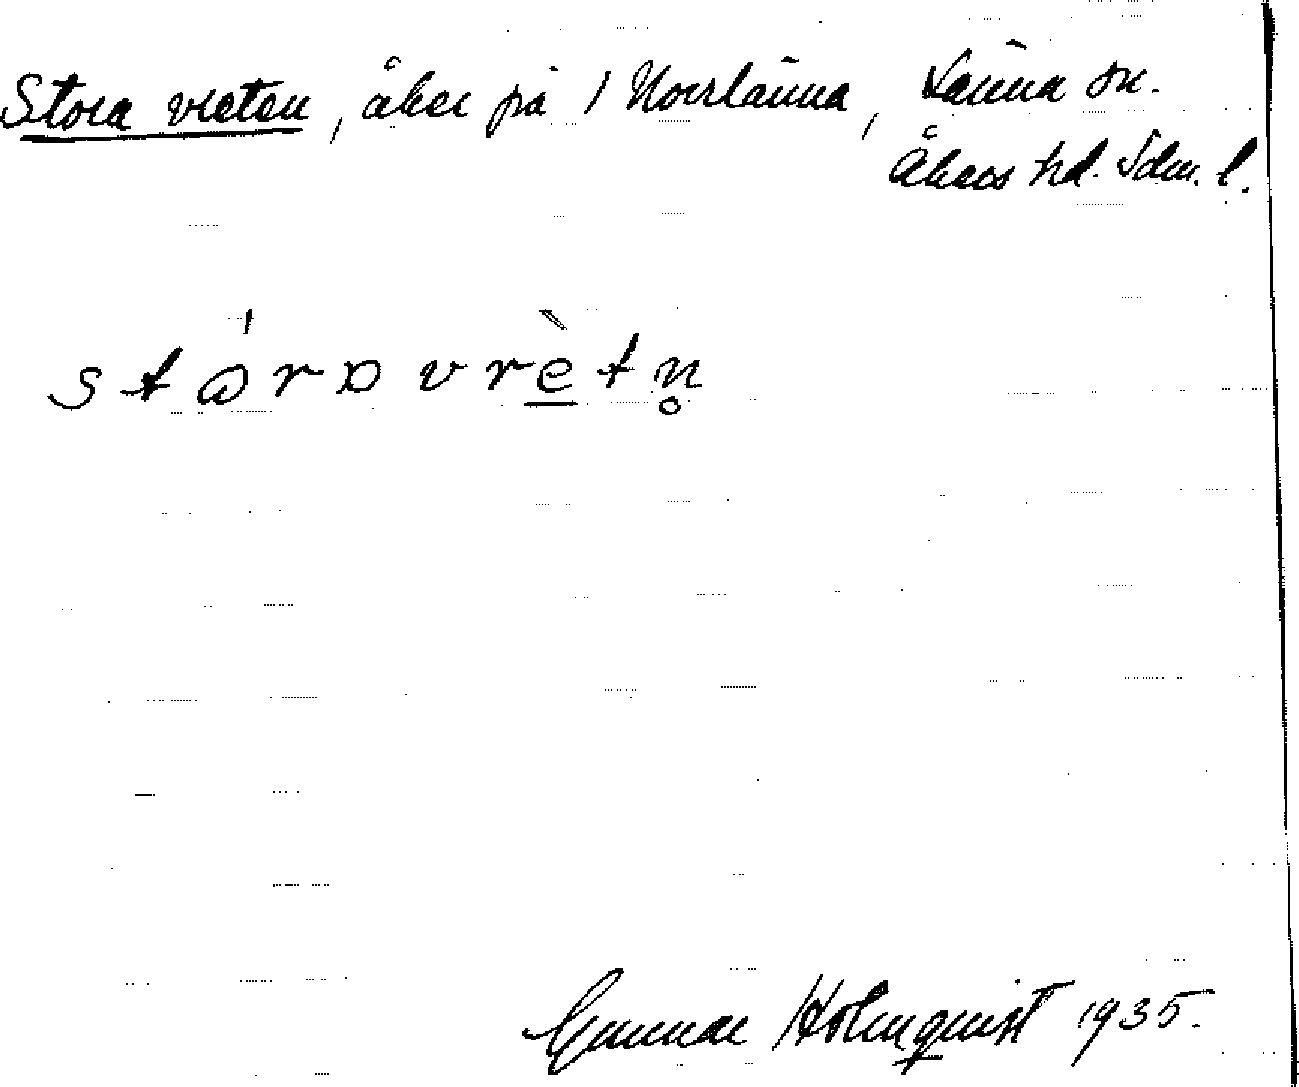 Stora vreten, åker på 1 Norrlänna, Länna sn.
Åkers hd. Sdm. l.
stóra vrètn̥
Gunnar Holmquist 1935.